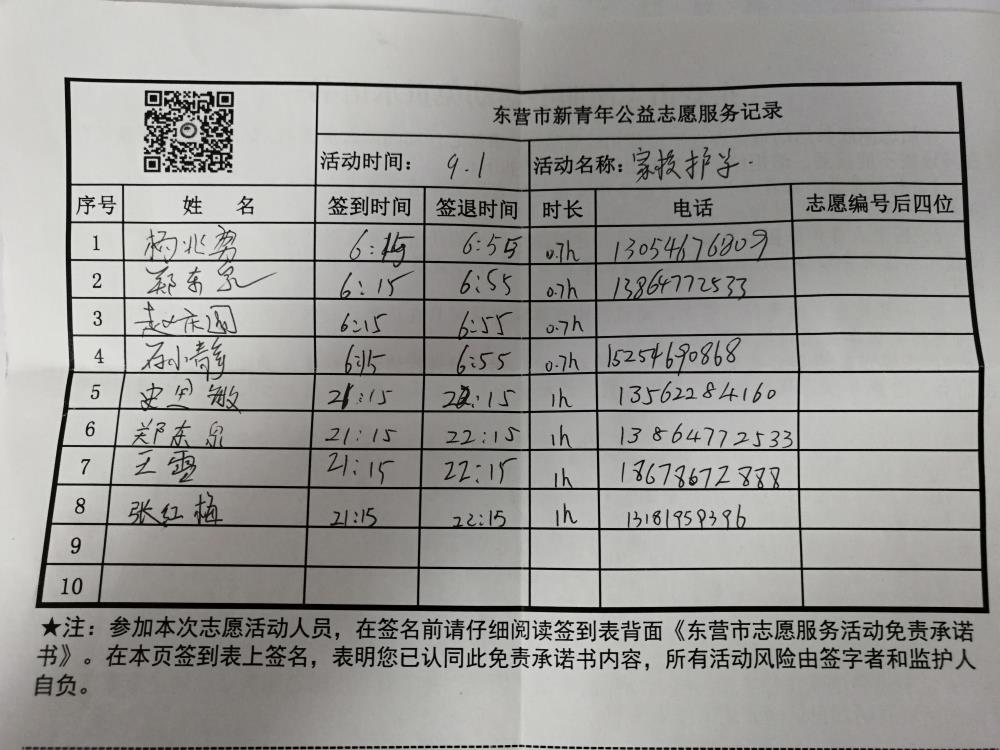 东营市新青年公益志愿服务记录
活动时间： 9.1 活动名称：家校护学.
序号 姓 名 签到时间 签退时间 时长 电话 志愿编号后四位
1 杨兆勇 6:15 6:55 0.7h 13054676809
2 郑东泉 6:15 6:55 0.7h 13864772533
3 赵庆国 6:15 6:55 0.7h
4 石小静 6:15 6:55 0.7h 15254690868
5 史 敏 21:15 22:15 1h 13562284160
6 郑东泉 21:15 22:15 1h 13864772533
7 王雪 21:15 22:15 1h 18678672888
8 张红梅 21:15 22:15 1h 13181959396
9
10
★注：参加本次志愿活动人员，在签名前请仔细阅读签到表背面《东营市志愿服务活动免责承诺
书》。在本页签到表上签名，表明您已认同此免责承诺书内容，所有活动风险由签字者和监护人
自负。